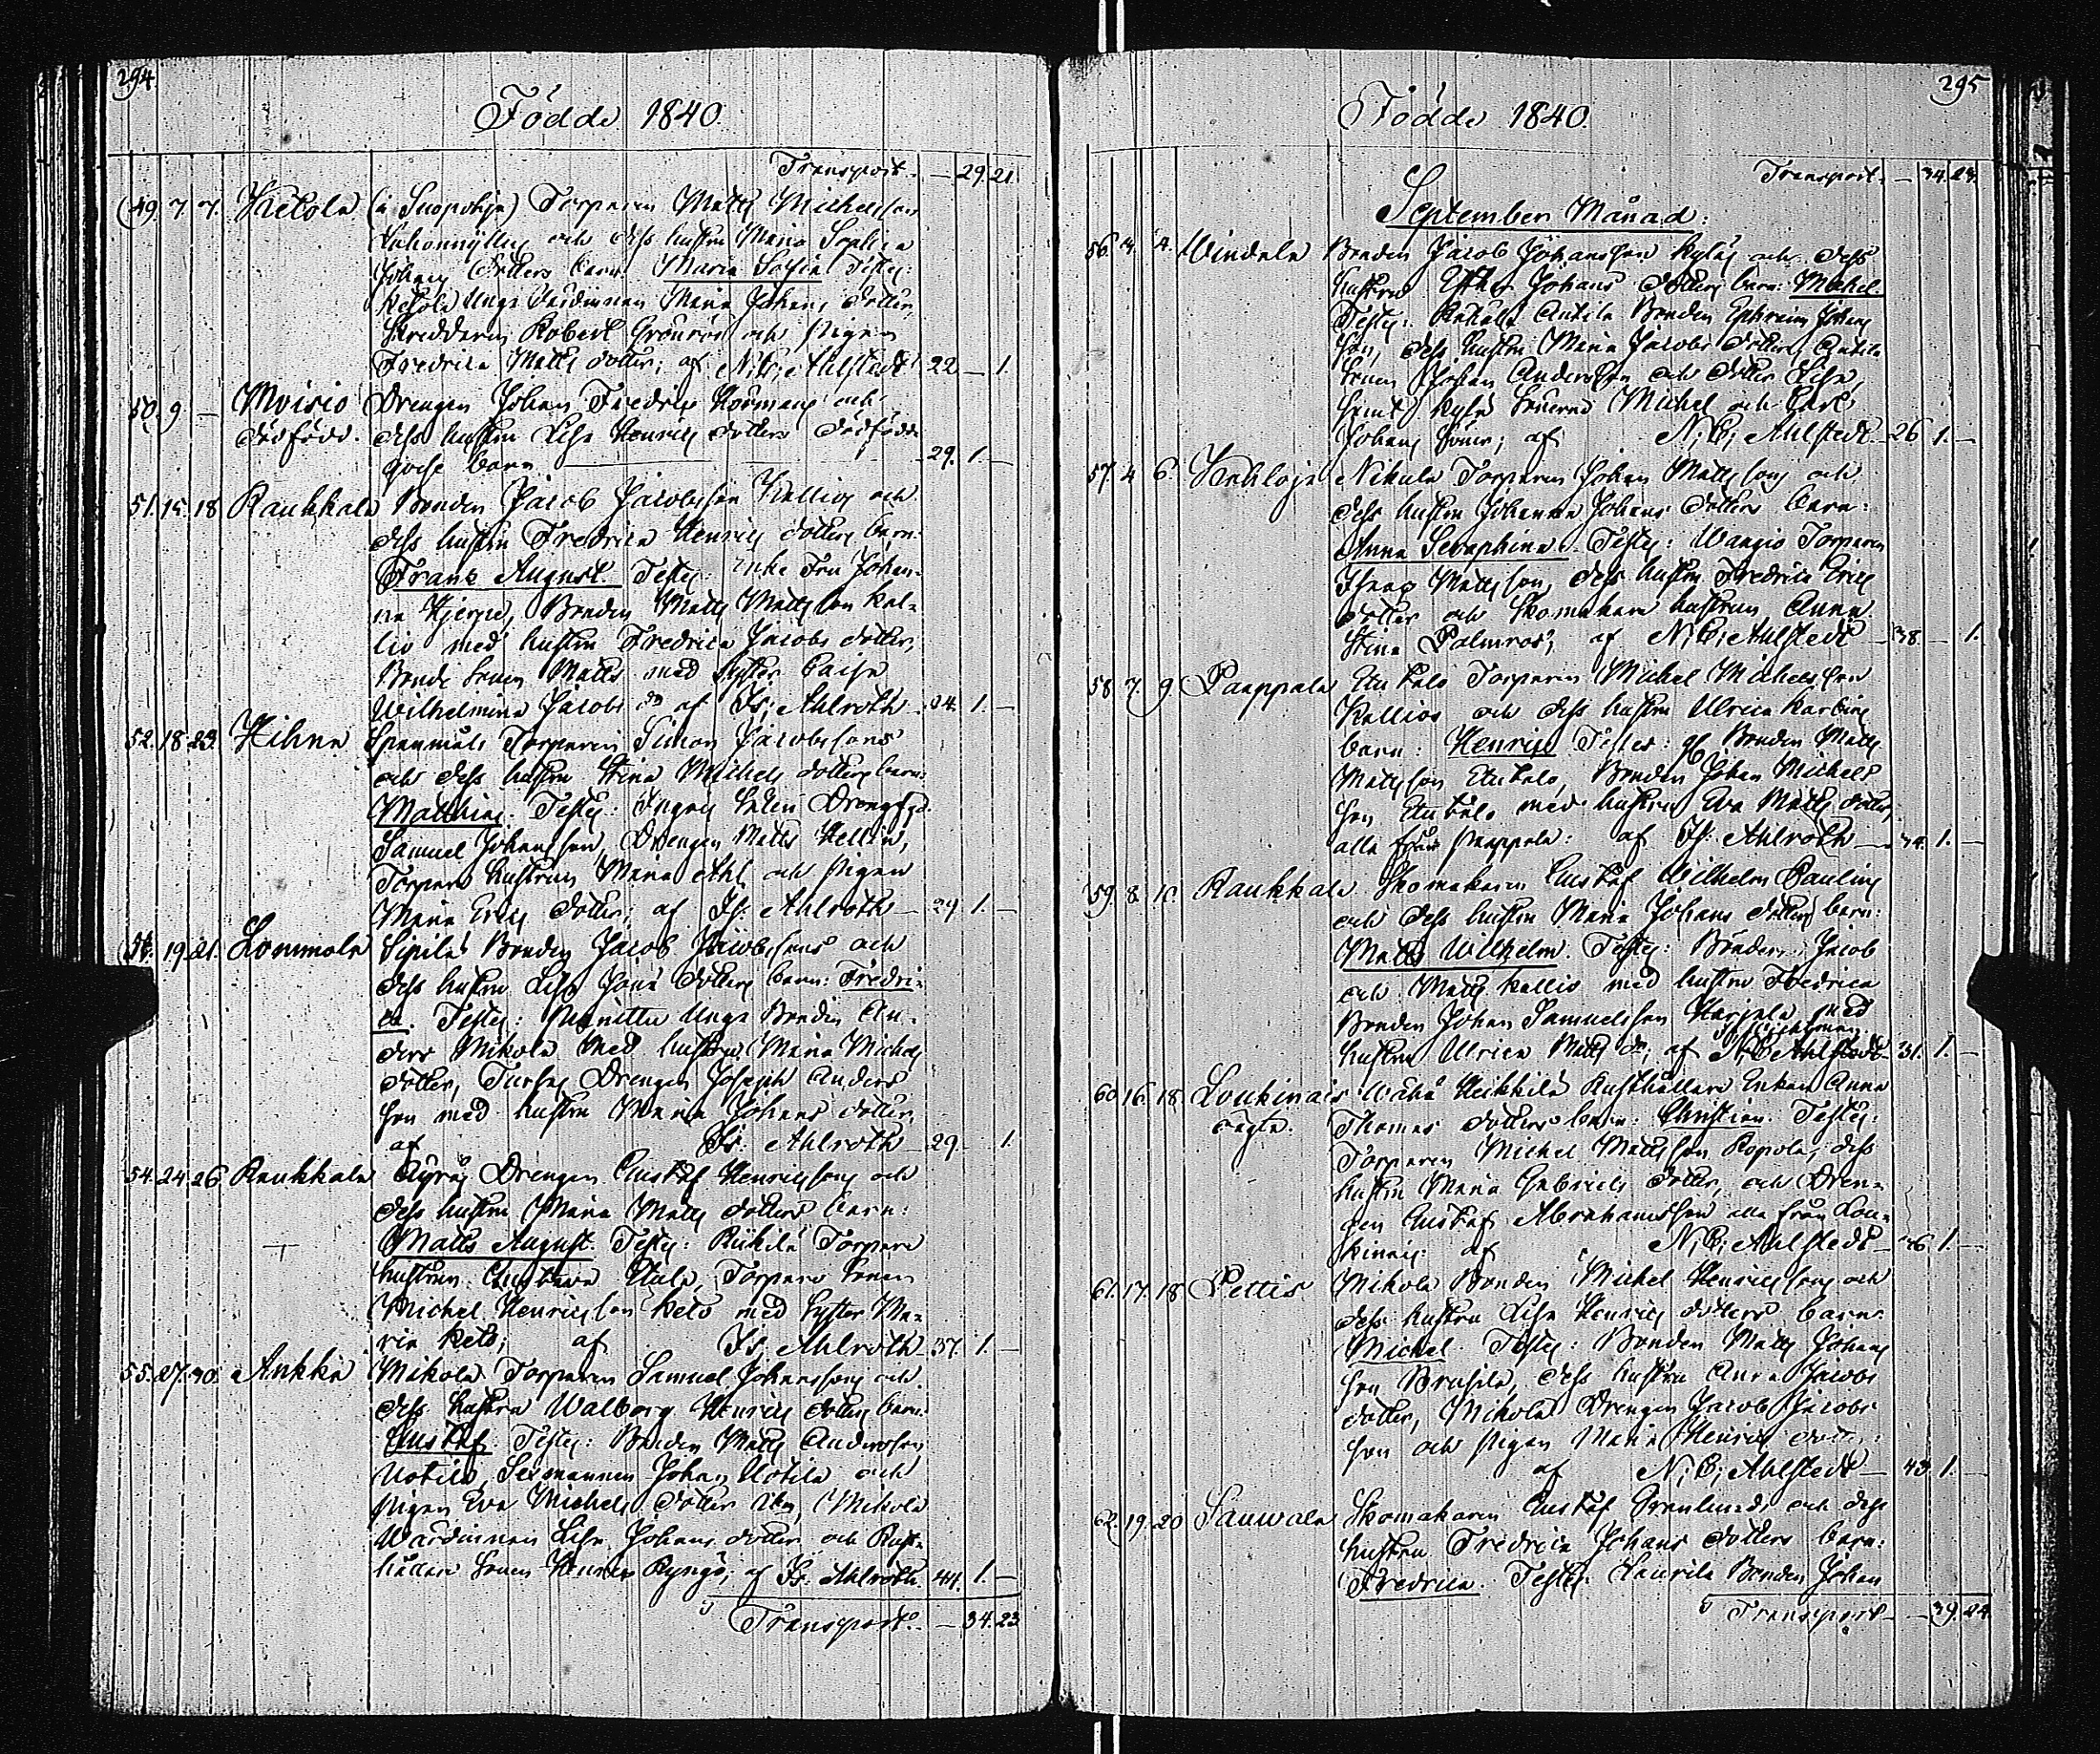 294
Födde 1840
Transport. — 29. 21.
49. 7. 7. Ketola (a Suopohja) Torparen Matts Michelsson
och dess hustru Maria Sophia
Johans dotters barn Maria Sofia Testes:
Ketola Unga Värdinnan Maria Johans dotter,
Skreddaren Robert Grönroos och Pigan
Fredrica Matts dotter; af N: C: Ahlstedt 22 — 1.
50. 9. — Moisio Drengen Johan Fredric Normans och
dödfödd. dess hustru Lisa Henrics dotters dödfödde
gosse barn — 29. 1. —
51. 15. 18 Raukkala Bonden Jacob Jacobsson Kallios och
dess hustru Fredrica Henrics dotters barn:
Frans August. Testes: Enke Fru Johan-
na Hjerpe, Bonden Matts Mattsson Kal-
lio med hustru Fredrica Jacobs dotter,
Bonde Sonen Matts med syster Caisa
Wilhelmina Jacobs dr af Is: Ahlroth 24. 1. —
52. 18. 23. Hihna Spennäls Torparen Simon Jacobssons
och dess hustru Stina Michels dotters barn:
Mathias. Testes:
Samuel Johansson, Drengen Matts Hellen,
Torpare hustrun Maria Ahl och Pigan
Maria Erics dotter; af Is: Ahlroth — 29 1. —
19. 21. Lommola Sipilä Bonden Jacob Jacobssons och
dess hustru Lisa Jona dotters barn: Fredri-
ca. Testes: Unga Bonden An-
ders Mikola med hustru Maria Michels
dotter, Drengen Joseph Anders
son med hustru Maria Johans dotter
af Is: Ahlroth — 29. — 1.
54. 24. 26. Raukkala Äyräs Drengen Gustaf Henricssons och
dess hustru Maria Matts dotters barn:
Matts August. Testes: Riihilä Torpare
hustrun Gustava, Torpare Sonen
Michel Henricsson Keto med Syster Ma-
ria Keto; af Is. Ahlroth 37. 1. —
55. 27. 30. Ankka Mikola Torparen Samuel Johanssons och
dess hustru Walborg Henrics dotters barn:
Gustaf. Testes: Bonden Matts Andersson
Uotila, Sexmannen Johan Uotila och
Pigan Eva Michels dotter, Mikola
Wärdinnan Lisa Johans dotter och Rust-
hållare Sonen Henric af Is: Ahlroth. 44. 1. —
Transport. — 34. 23
295
Födde 1840.
Transport. — 34. 23.
September Månad:
56. 4. Uindala Bonden Jacob Johansson Kyläs och dess
hustru Johans dotters barn: Michel.
Testes: Rekola Antila Bonden Ephraim Johans
son, dess hustru Maria Jacobs dotter, Antila
Sonen Johan Andersson och dotter Lisa,
samt Kylä Sönerne Michel och Carl
Johans söner; af N: C: Ahlstedt 26 1. —
57. 4 6. Kehkoja Nikula Torparen Johan Mattssons och
dess hustru Johanna Johans dotters barn:
Anna Seraphina. Testes: Wangio Torparen
Isaac Mattsson, dess hustru Fredrica Erics
dotter och Skomakare hustrun Anna
Stina Palmros; af N: C: Ahlstedt — 38. — 1.
58. 7. 9. Paappala Torparen Michel Michelsson
Kallios och dess hustru Ulrica Karbins
barn: Henric Testes: Bonden Matts
Mattsson Etutalo, Bonden Johan Michels
son Etutalo med hustru Eva Matts dotter,
alla från Paappala: af Is: Ahlroth — 34. 1. —
59. 8. 10. Raukkala Skomakaren Gustaf Wilhelm Paulins
och dess hustru Maria Johans dotters barn:
Matts Wilhelm. Testes: Bönderne Jacob
och Matts Kallio med hustru Fredrica
Bonden Johan Samuelsson Harjula med
hustru Ulrica Matts dr; af N: C: Ahlstedt 31. 1. —
60. 16. 18. Loukinais Wähä Heikkilä Rusthållare Enkan Anna
oägta. Thomas dotters barn: Christian. Testes:
Torparen Michel Mattsson Ropola, dess
hustru Maria Gabriels dotter, och Dren-
gen Gustaf Abrahamsson alla från Lou-
kinais: af N: C: Ahlstedt — 36. 1. —
61. 17. 18 Pettis Mikola Bonden Michel Henricssons och
dess hustru Lisa Henrics dotters barn
Michel. Testes: Bonden Matts Johans
son Brusila, dess hustru Anna Jacobs
dotter, Mikola Drengen Jacob Jacobs
son och Pigan Maria Henrics dotter:
af N: C: Ahlstedt — 43. 1. —
62. 19. 20 Sauwala Skomakaren Gustaf Grenlunds och dess
hustru Fredrica Johans dotters barn:
Fredrica. Testes: Laurila Bonden Johan
Transport — 39. 24.